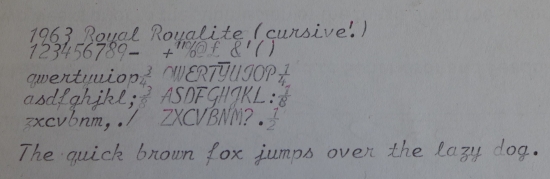 1963 Royal Royalite (cursive!)
123456789- +"%@£ &'()
qwertyuiop¾ QWERTYUIOP¼
asdfghjkl;⅜ ASDFGHJKL:⅛
zxcvbnm,./ ZXCVBNM?.½
The quick brown fox jumps over the lazy dog.